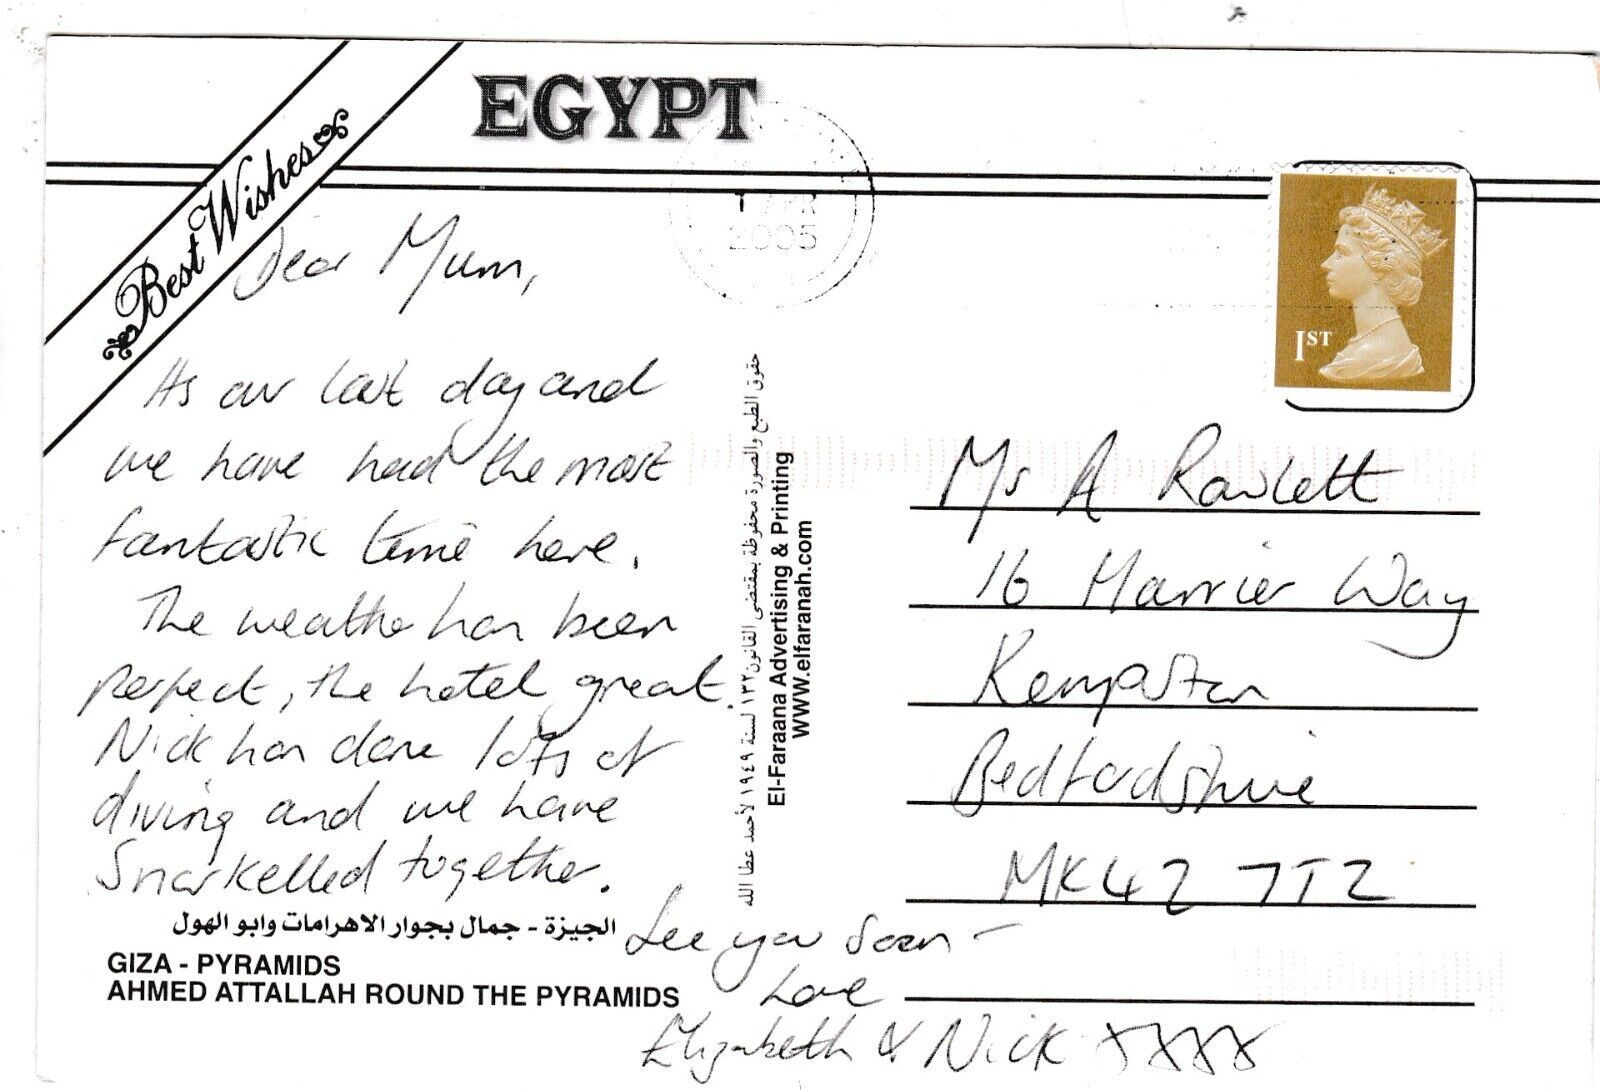 EGYPT
Best Wishes
2005
1ST
Dear Mum,
Its our last day and
we have had the most
fantastic time here.
The weather has been
perfect, the hotel great.
Nick has done lots of
diving and we have
Snorkelled together.
See you soon -
Love
Elizabeth & Nick xxxx
الجيزة - جمال بجوار الاهرامات وابو الهول
GIZA - PYRAMIDS
AHMED ATTALLAH ROUND THE PYRAMIDS
حقوق الطبع والصورة محفوظة بمقتضى القانون ١٣٢ لسنة ١٩٤٩ لأحمد عطا الله
El-Faraana Advertising & Printing
WWW.elfaranah.com
Ms A Rowlett
16 Harrier Way
Kempston
Bedfordshire
MK42 7TZ